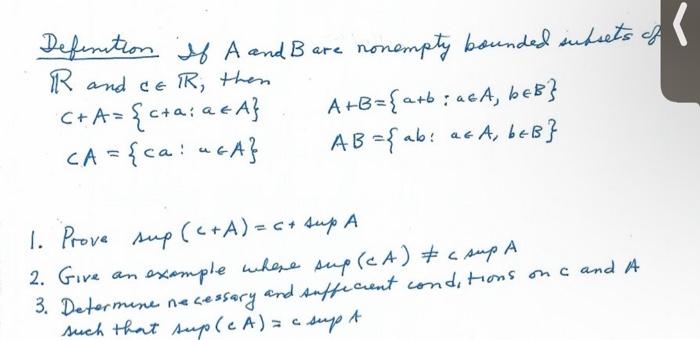 Definition If A and B are nonempty bounded subsets of
ℝ and c ∈ ℝ, then
c+A = {c+a : a ∈ A} A+B = {a+b : a∈A, b∈B}
cA = {ca : a ∈ A} AB = {ab : a∈A, b∈B}
1. Prove sup (c+A) = c + sup A
2. Give an example where sup (cA) ≠ c sup A
3. Determine necessary and sufficient conditions on c and A
such that sup (cA) = c sup A